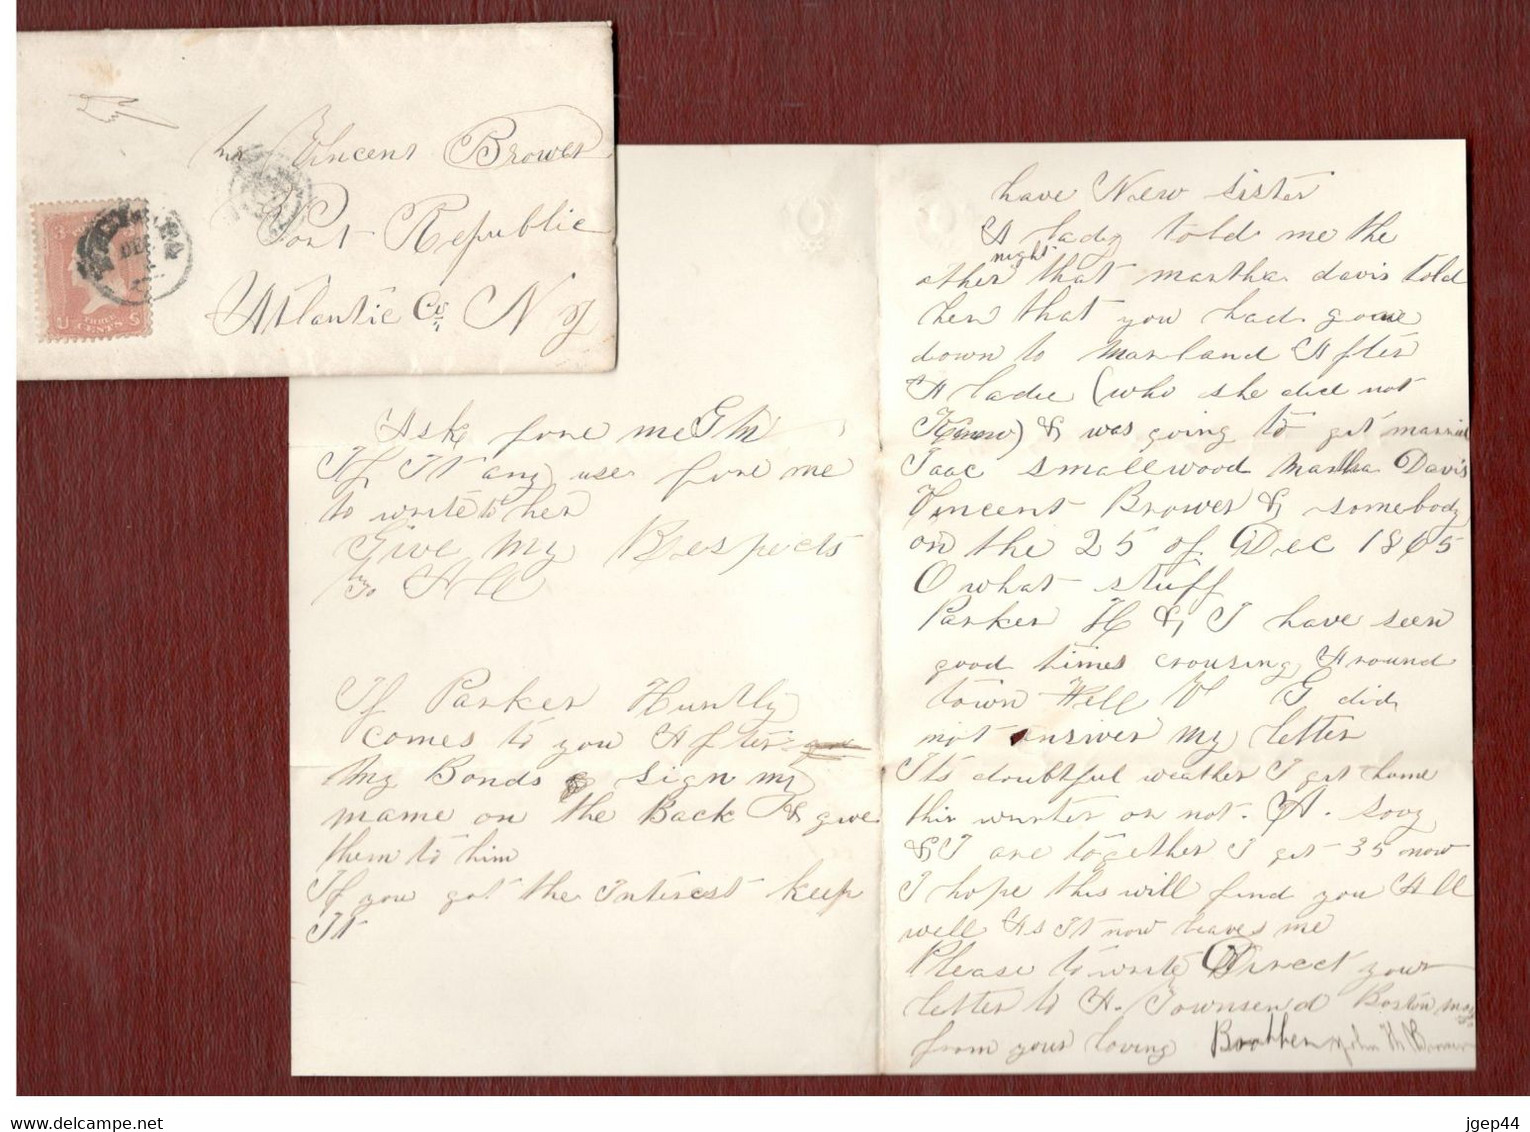 Mr Vincent Brower
Port Republic
Atlantic Co. N J
THREE CENTS
DEC
Ask fore me
If It any use fore me
to write to her
Give My Respects
To All
If Parker Huntly
comes to you After
My Bonds sign my
name on the Back & give
them to him
If you got the Interest keep
It
have New sister
A lady told me the
other night that martha davis told
her that you had gone
down to Marland After
A ladie (who she did not
Know) & was going to get married
Isac smallwood Martha Davis
Vincent Brower & somebody
on the 25 of Dec 1865
O what stuff
Parker H & I have seen
good times crousing Around
town Well G did
not answer My letter
Its doubtful weather I get home
this winter or not. A. Sooy
& I are together I get 35 now
I hope this will find you All
well As It now leaves me
Please to write Direct your
letter to A. Townsend Boston Mass
from your loving Brother John H Brower
www.delcampe.net
jgep44